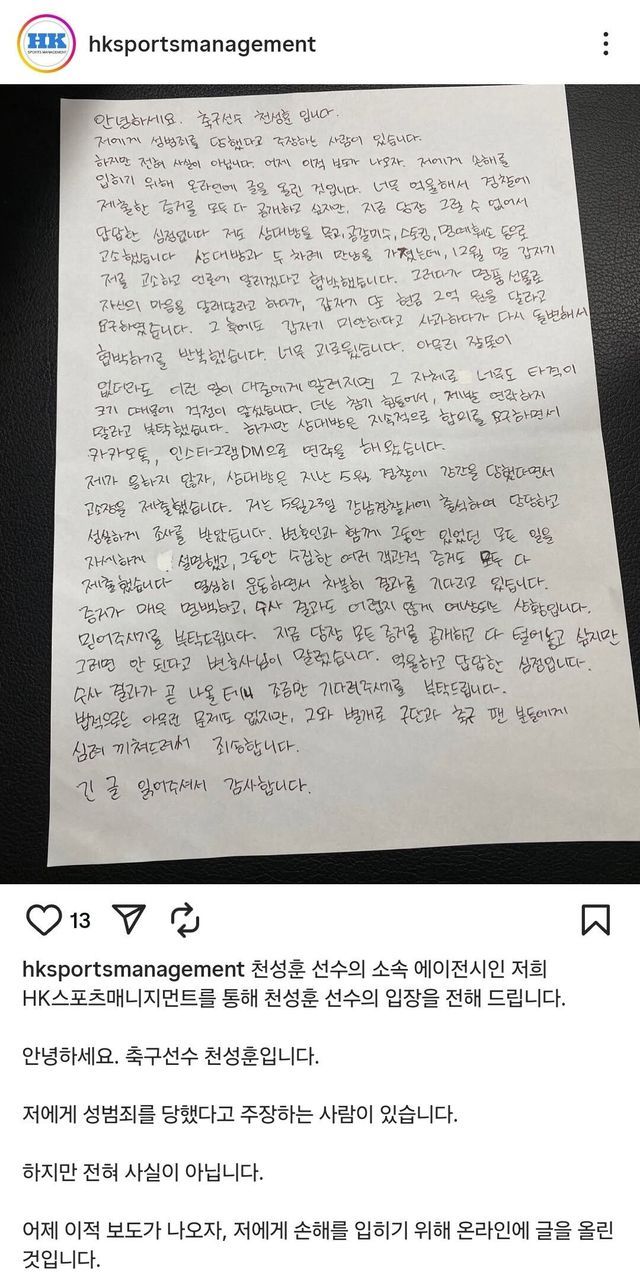 HK
SPORTS MANAGEMENT
hksportsmanagement
안녕하세요. 축구선수 천성훈 입니다.
저에게 성범죄를 당했다고 주장하는 사람이 있습니다.
하지만 전혀 사실이 아닙니다. 어제 이적 보도가 나오자, 저에게 손해를
입히기 위해 온라인에 글을 올린 것입니다. 너무 억울해서 경찰에
제출한 증거를 모두 다 공개하고 싶지만, 지금 당장 그럴 수 없어서
답답한 심정입니다 저도 상대방을 무고, 공갈미수, 스토킹, 명예훼손 등으로
고소했습니다 상대방과 두 차례 만남을 가졌는데, 12월 말 갑자기
저를 고소하고 언론에 알리겠다고 협박했습니다. 그러다가 명품 선물로
자신의 마음을 달래달라고 하다가, 갑자기 또 현금 2억 원을 달라고
요구하였습니다. 그 후에도 갑자기 미안하다고 사과하다가 다시 돌변해서
협박하기를 반복했습니다. 너무 괴로웠습니다. 아무리 잘못이
없더라도 이런 일이 대중에게 알려지면 그 자체로 너무도 타격이
크기 때문에 걱정이 앞섰습니다. 더는 참기 힘들어서, 제발 연락하지
말라고 부탁했습니다. 하지만 상대방은 지속적으로 합의를 요구하면서
카카오톡, 인스타그램DM으로 연락을 해 왔습니다.
제가 응하지 않자, 상대방은 지난 5월, 경찰에 강간을 당했다면서
고소장을 제출했습니다. 저는 5월23일 강남경찰서에 출석하여 당당하고
성실하게 조사를 받았습니다. 변호인과 함께 그동안 있었던 모든 일을
자세하게 설명했고, 그동안 수집한 여러 객관적 증거도 모두 다
제출했습니다 열심히 운동하면서 차분히 결과를 기다리고 있습니다.
증거가 매우 명백하고, 수사 결과도 어렵지 않게 예상되는 상황입니다.
믿어주시기를 부탁드립니다. 지금 당장 모든 증거를 공개하고 다 털어놓고 싶지만
그러면 안 된다고 변호사님이 말렸습니다. 억울하고 답답한 심정입니다.
수사 결과가 곧 나올 테니 조금만 기다려주시기를 부탁드립니다.
법적으로는 아무런 문제도 없지만, 그와 별개로 구단과 축구 팬 분들에게
심려 끼쳐드려서 죄송합니다.
긴 글 읽어주셔서 감사합니다.
13
hksportsmanagement 천성훈 선수의 소속 에이전시인 저희
HK스포츠매니지먼트를 통해 천성훈 선수의 입장을 전해 드립니다.
안녕하세요. 축구선수 천성훈입니다.
저에게 성범죄를 당했다고 주장하는 사람이 있습니다.
하지만 전혀 사실이 아닙니다.
어제 이적 보도가 나오자, 저에게 손해를 입히기 위해 온라인에 글을 올린
것입니다.